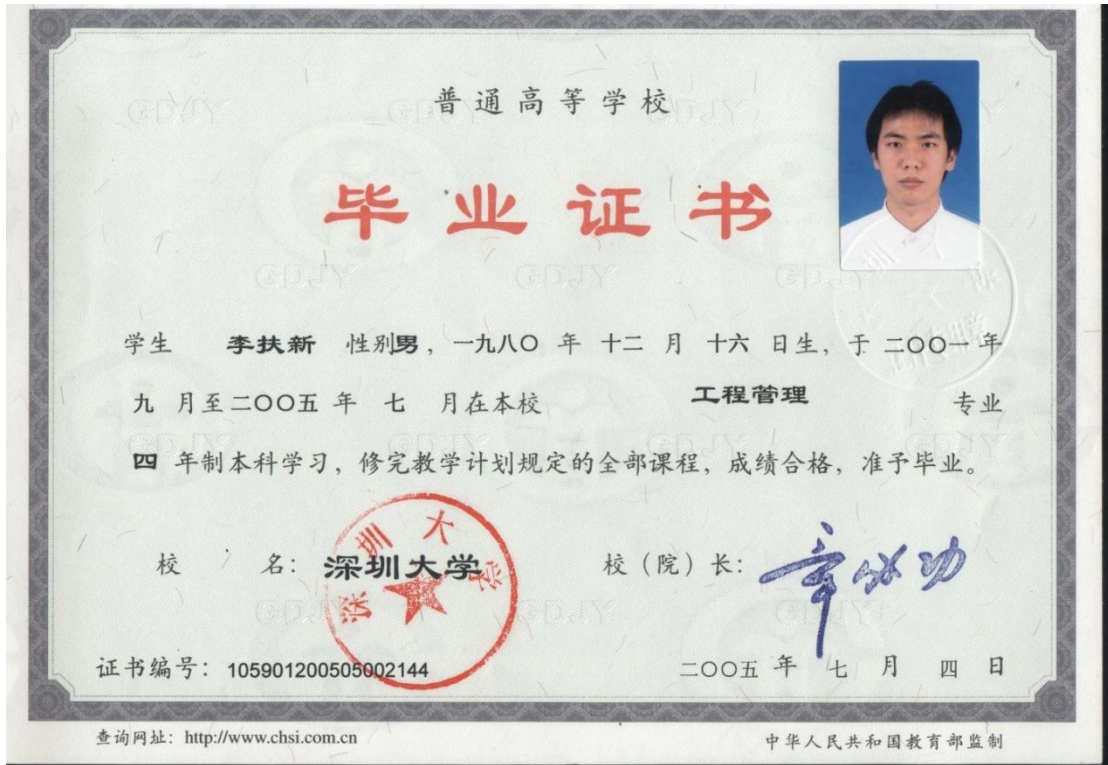 普通高等学校
毕业证书
学生 李扶新 性别男，一九八〇 年 十二 月 十六 日生，于 二〇〇一 年
九 月至二〇〇五 年 七 月在本校 工程管理 专业
四 年制本科学习，修完教学计划规定的全部课程，成绩合格，准予毕业。
校 名：深圳大学
深圳大学
校（院）长：章必功
证书编号：105901200505002144
二〇〇五 年 七 月 四 日
查询网址：http://www.chsi.com.cn
中华人民共和国教育部监制